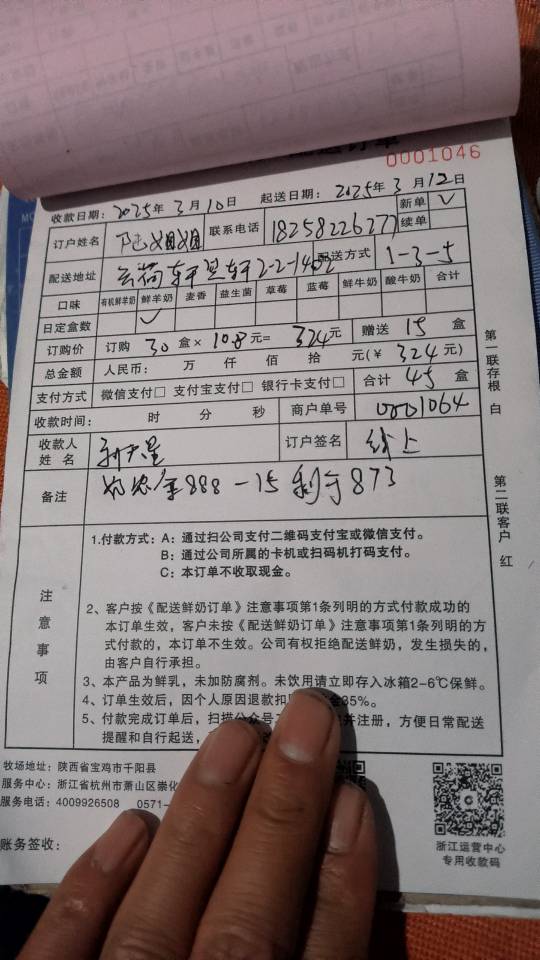 0001046
收款日期：2025年3月10日 起送日期：2025年3月12日 新单 ✓
续单
订户姓名 联系电话 18258226277
配送地址 2-2-1402 配送方式 1-3-5
口味 有机鲜羊奶 鲜羊奶 麦香 益生菌 草莓 蓝莓 鲜牛奶 酸牛奶 合计
日定盒数 ✓
订购价 订购 30 盒× 10.8 元= 324元 赠送 15 盒
总金额 人民币： 万 仟 佰 拾 元(￥ 324元)
支付方式 微信支付□ 支付宝支付□ 银行卡支付□ 合计 45 盒
收款时间： 时 分 秒 商户单号 0001064
收款人姓名 订户签名 线上
备注 888-15 剩于873
第一联存根 白
第二联客户 红
注意事项
1.付款方式：A：通过扫公司支付二维码支付宝或微信支付。
B：通过公司所属的卡机或扫码机打码支付。
C：本订单不收取现金。
2、客户按《配送鲜奶订单》注意事项第1条列明的方式付款成功的
本订单生效，客户未按《配送鲜奶订单》注意事项第1条列明的方
式付款的，本订单不生效。公司有权拒绝配送鲜奶，发生损失的，
由客户自行承担。
3、本产品为鲜乳，未加防腐剂。未饮用请立即存入冰箱2-6℃保鲜。
4、订单生效后，因个人原因退款扣 35%。
5、付款完成订单后，扫描公众号 并注册，方便日常配送
提醒和自行起送，
牧场地址：陕西省宝鸡市千阳县
服务中心：浙江省杭州市萧山区崇化
服务电话：4009926508 0571-
账务签收：
浙江运营中心
专用收款码